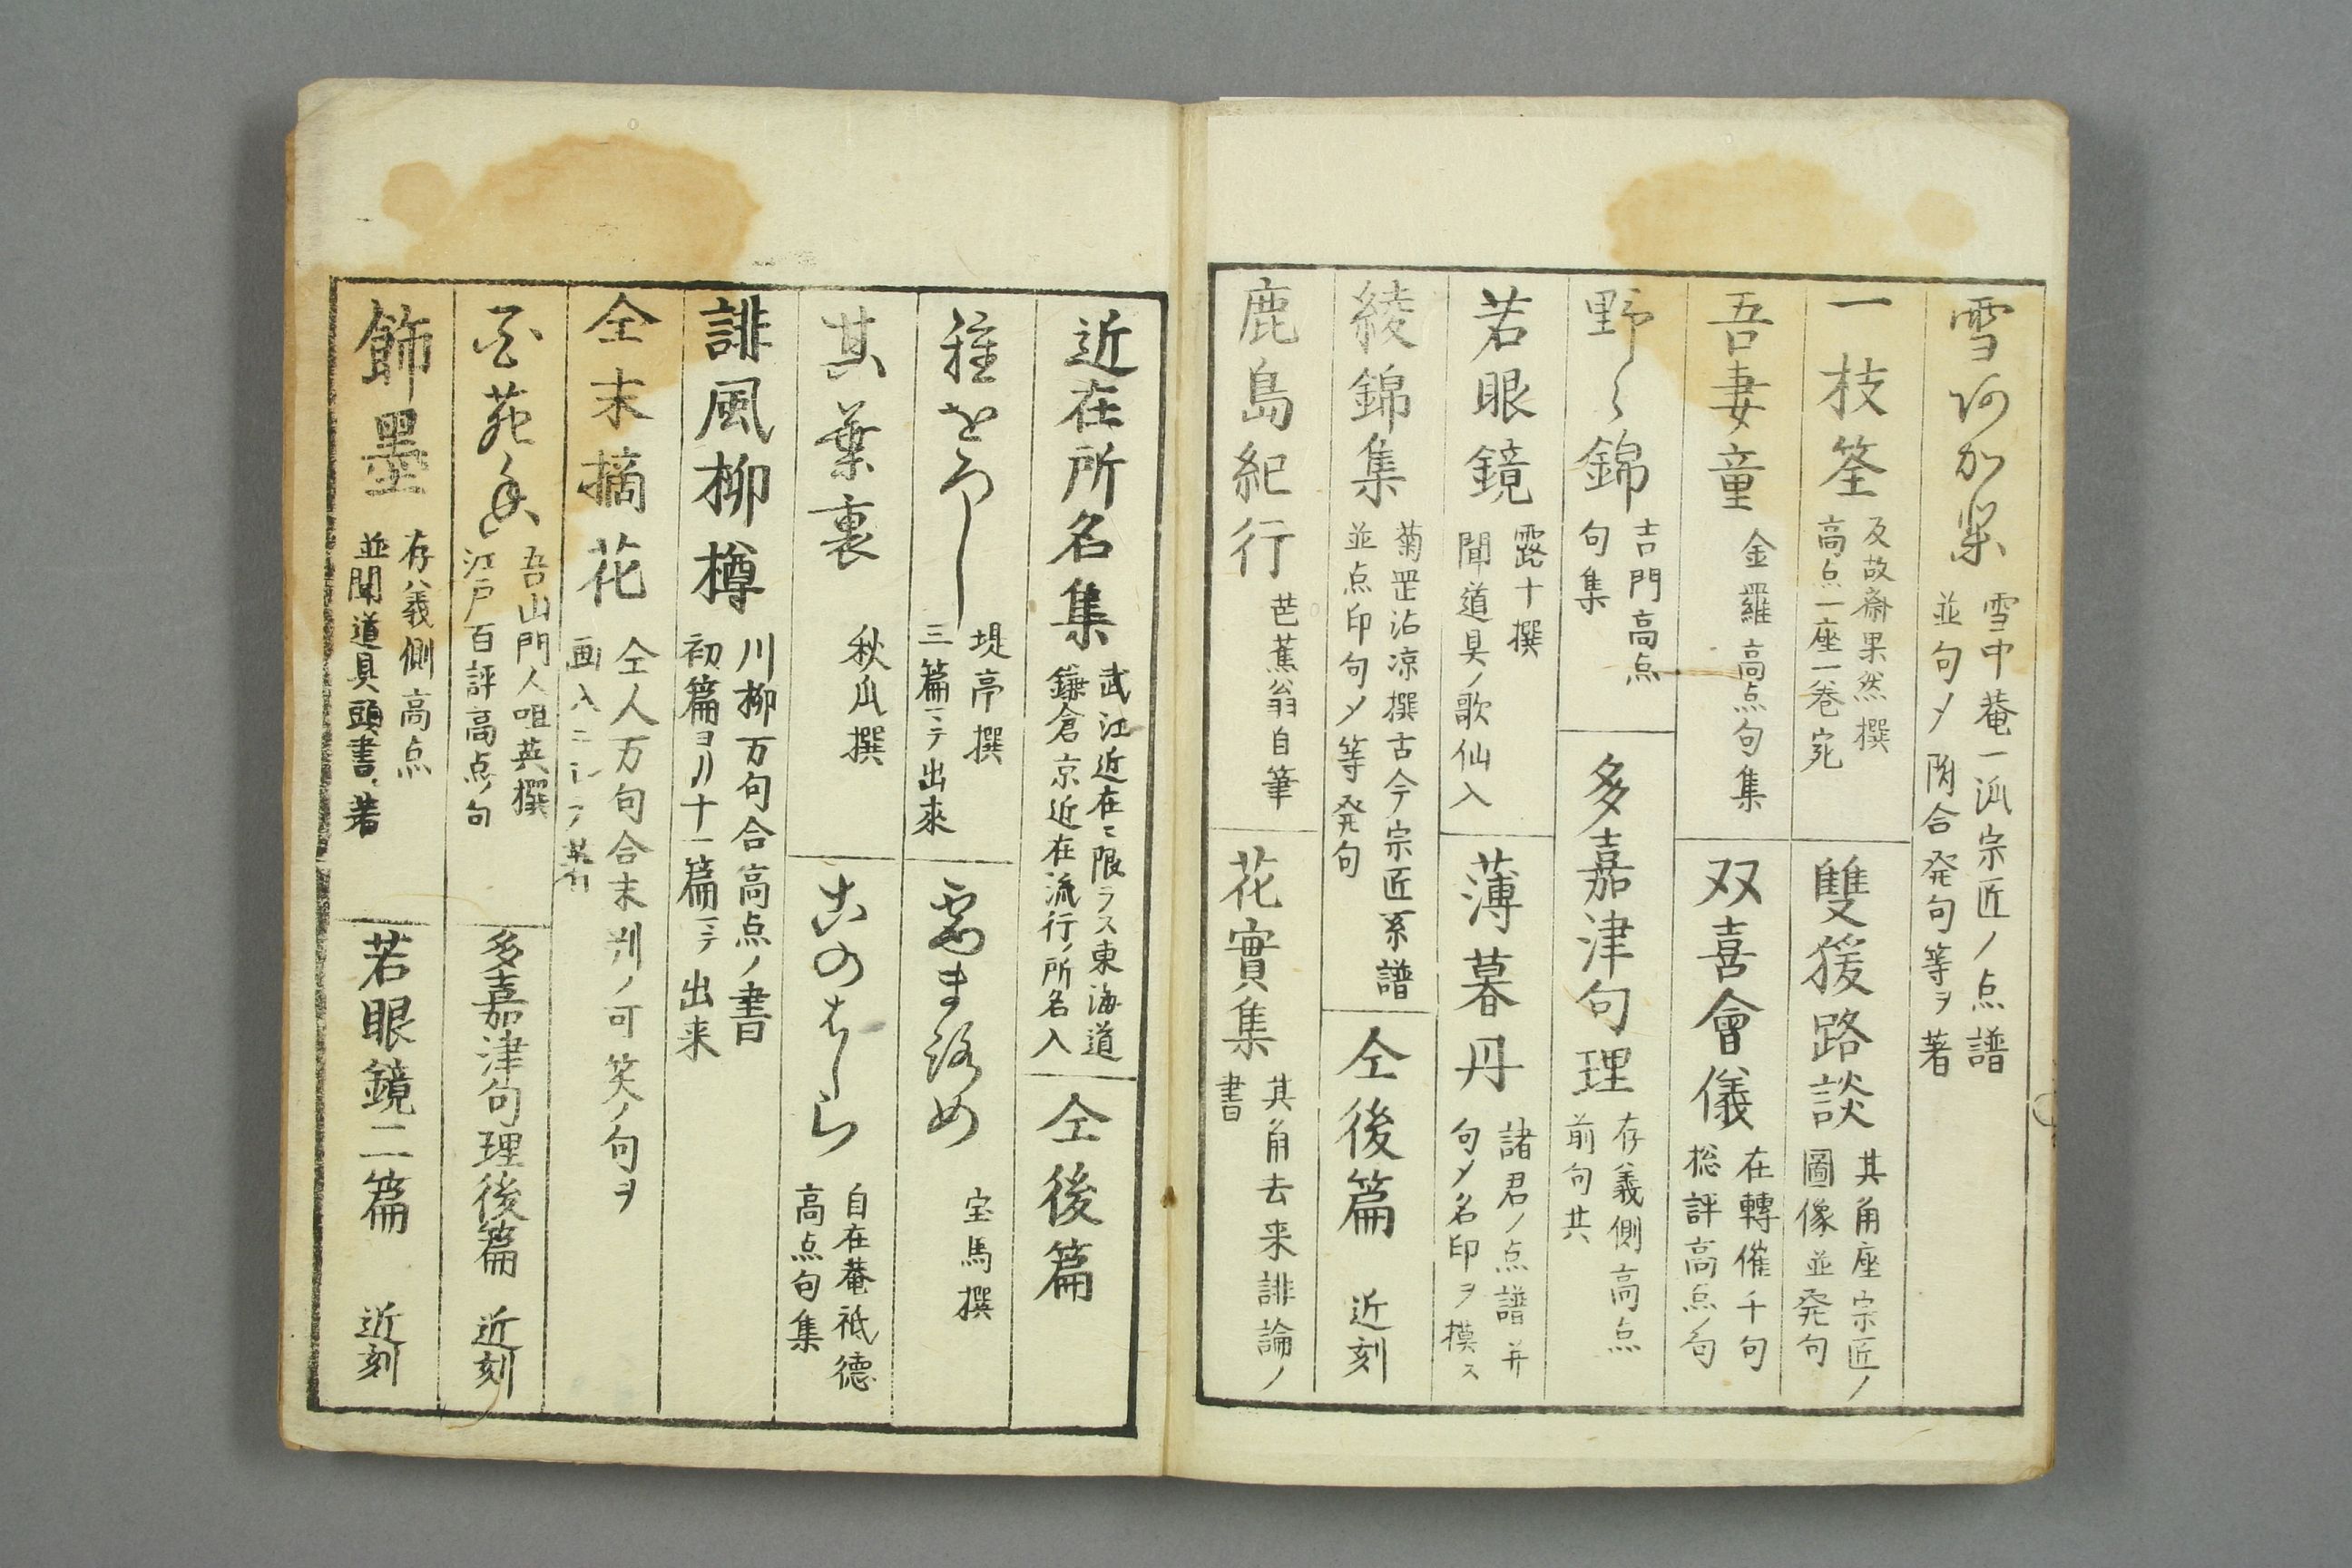 雪河加栞
雪中菴一派宗匠ノ点譜
並句〆附合発句等ヲ著
一枝筌
反故齋果然撰
高点一座一巻宛
雙猨路談
其角座宗匠ノ
圖像並発句
吾妻童
金羅高点句集
双喜會儀
在轉催千句
捴評高点ノ句
野〻錦
吉門高点
句集
多嘉津句理
存義側高点
前句共
若眼鏡
露十撰
聞道具ノ歌仙入
薄暮丹
諸君ノ点譜并
句〆名印ヲ摸ス
綾錦集
菊罡沾凉撰古今宗匠系譜
並点印句〆等発句
仝後篇 近刻
鹿島紀行
芭蕉翁自筆
花實集
其角去来誹論ノ
書
近在所名集
武江近在ニ限ラス東海道
鎌倉京近在流行ノ所名入
仝後篇
種をろし
堤亭撰
三篇ニテ出來
宝馬撰
其葉裏
秋瓜撰
古のはしら
自在菴祇德
高点句集
誹風柳樽
川柳万句合高点ノ書
初篇ヨリ十一篇ニテ出来
仝末摘花
仝人万句合末判ノ可笑ノ句ヲ
吾山門人咀英撰
江戸百評高点ノ句
多嘉津句理後篇 近刻
飾墨
存義側高点
並聞道具頭書ノ著
若眼鏡二篇 近刻